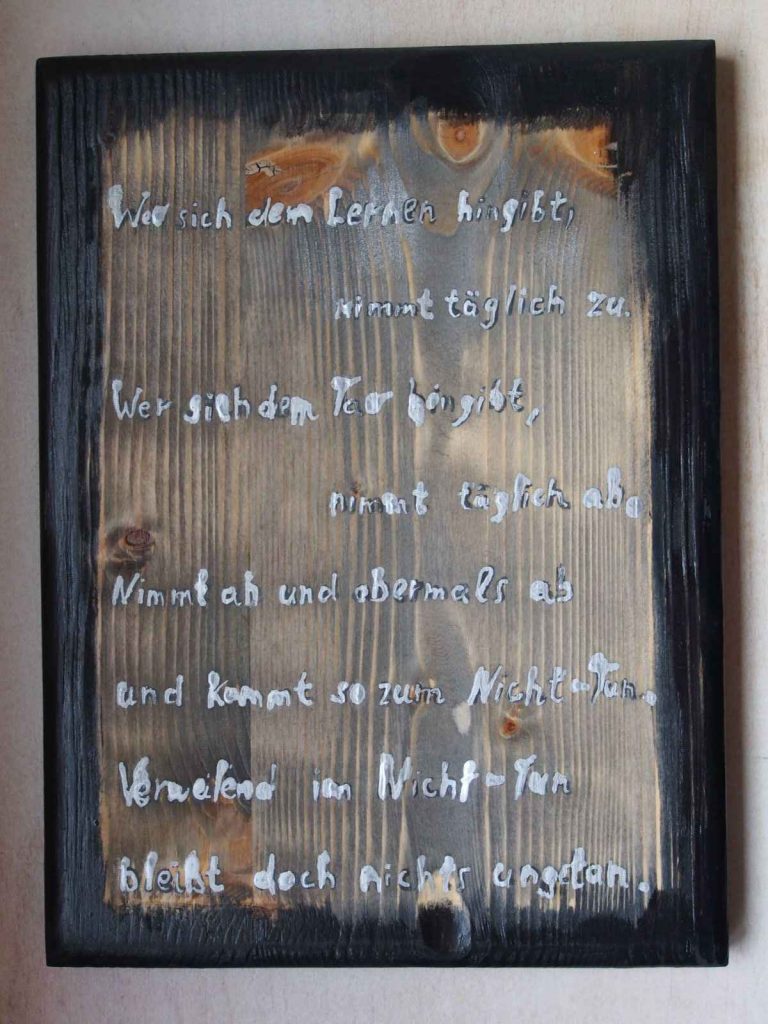 Wer sich dem Lernen hingibt,
nimmt täglich zu.
Wer sich dem Tao hingibt,
nimmt täglich ab.
Nimmt ab und abermals ab
und kommt so zum Nicht-Tun.
Verweilend im Nicht-Tun
bleibt doch nichts ungetan.